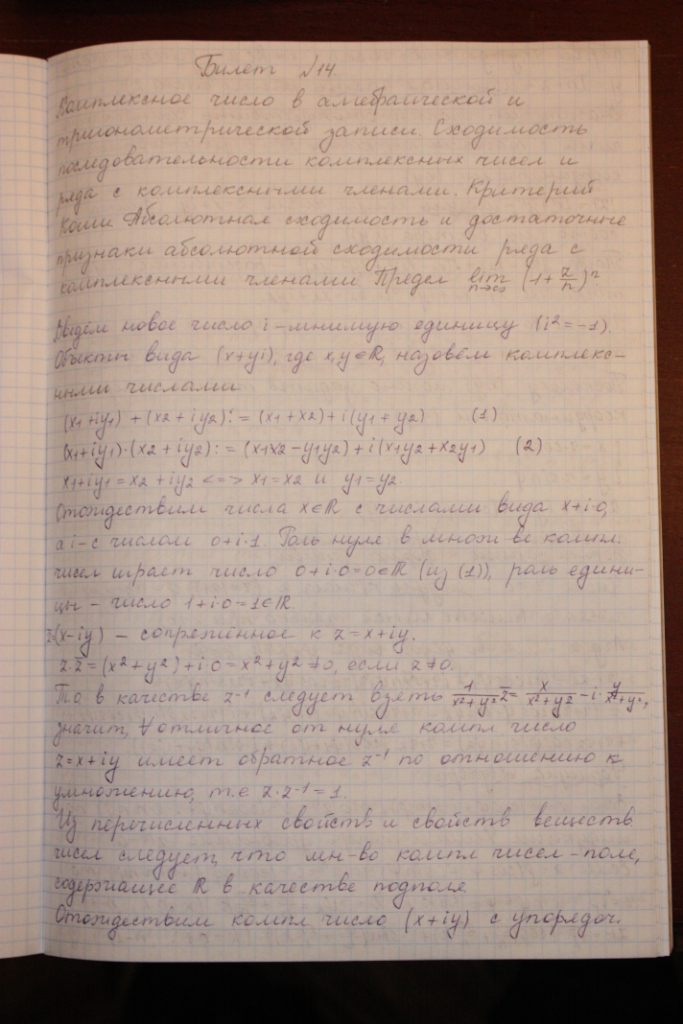 Билет №14
Комплексное число в алгебраической и
тригонометрической записи. Сходимость
последовательности комплексных чисел и
ряда с комплексными членами. Критерий
Коши. Абсолютная сходимость и достаточные
признаки абсолютной сходимости ряда с
комплексными членами Предел lim n→∞ (1+z/n)^n
Введём новое число i – мнимую единицу (i²=-1).
Объекты вида (x+yi), где x,y∈ℝ, назовём комплекс-
ными числами
(x1+iy1)+(x2+iy2):=(x1+x2)+i(y1+y2) (1)
(x1+iy1)·(x2+iy2):=(x1x2-y1y2)+i(x1y2+x2y1) (2)
x1+iy1=x2+iy2 <=> x1=x2 и y1=y2.
Отождествим числа x∈ℝ с числами вида x+i·0,
а i – с числом 0+i·1. Роль нуля в множ-ве компл.
чисел играет число 0+i·0=0∈ℝ (из (1)), роль едини-
цы – число 1+i·0=1∈ℝ.
(x-iy) – сопряжённое к z=x+iy.
z·z̄=(x²+y²)+i·0=x²+y²≠0, если z≠0.
То в качестве z⁻¹ следует взять 1/(x²+y²) z̄ = x/(x²+y²) - i· y/(x²+y²),
значит, ∀ отличное от нуля компл число
z=x+iy имеет обратное z⁻¹ по отношению к
умножению, т.е z·z⁻¹=1.
Из перечисленных свойств и свойств веществ
чисел следует, что мн-во компл чисел – поле,
содержащее ℝ в качестве подполя
Отождествим компл число (x+iy) с упорядоч.